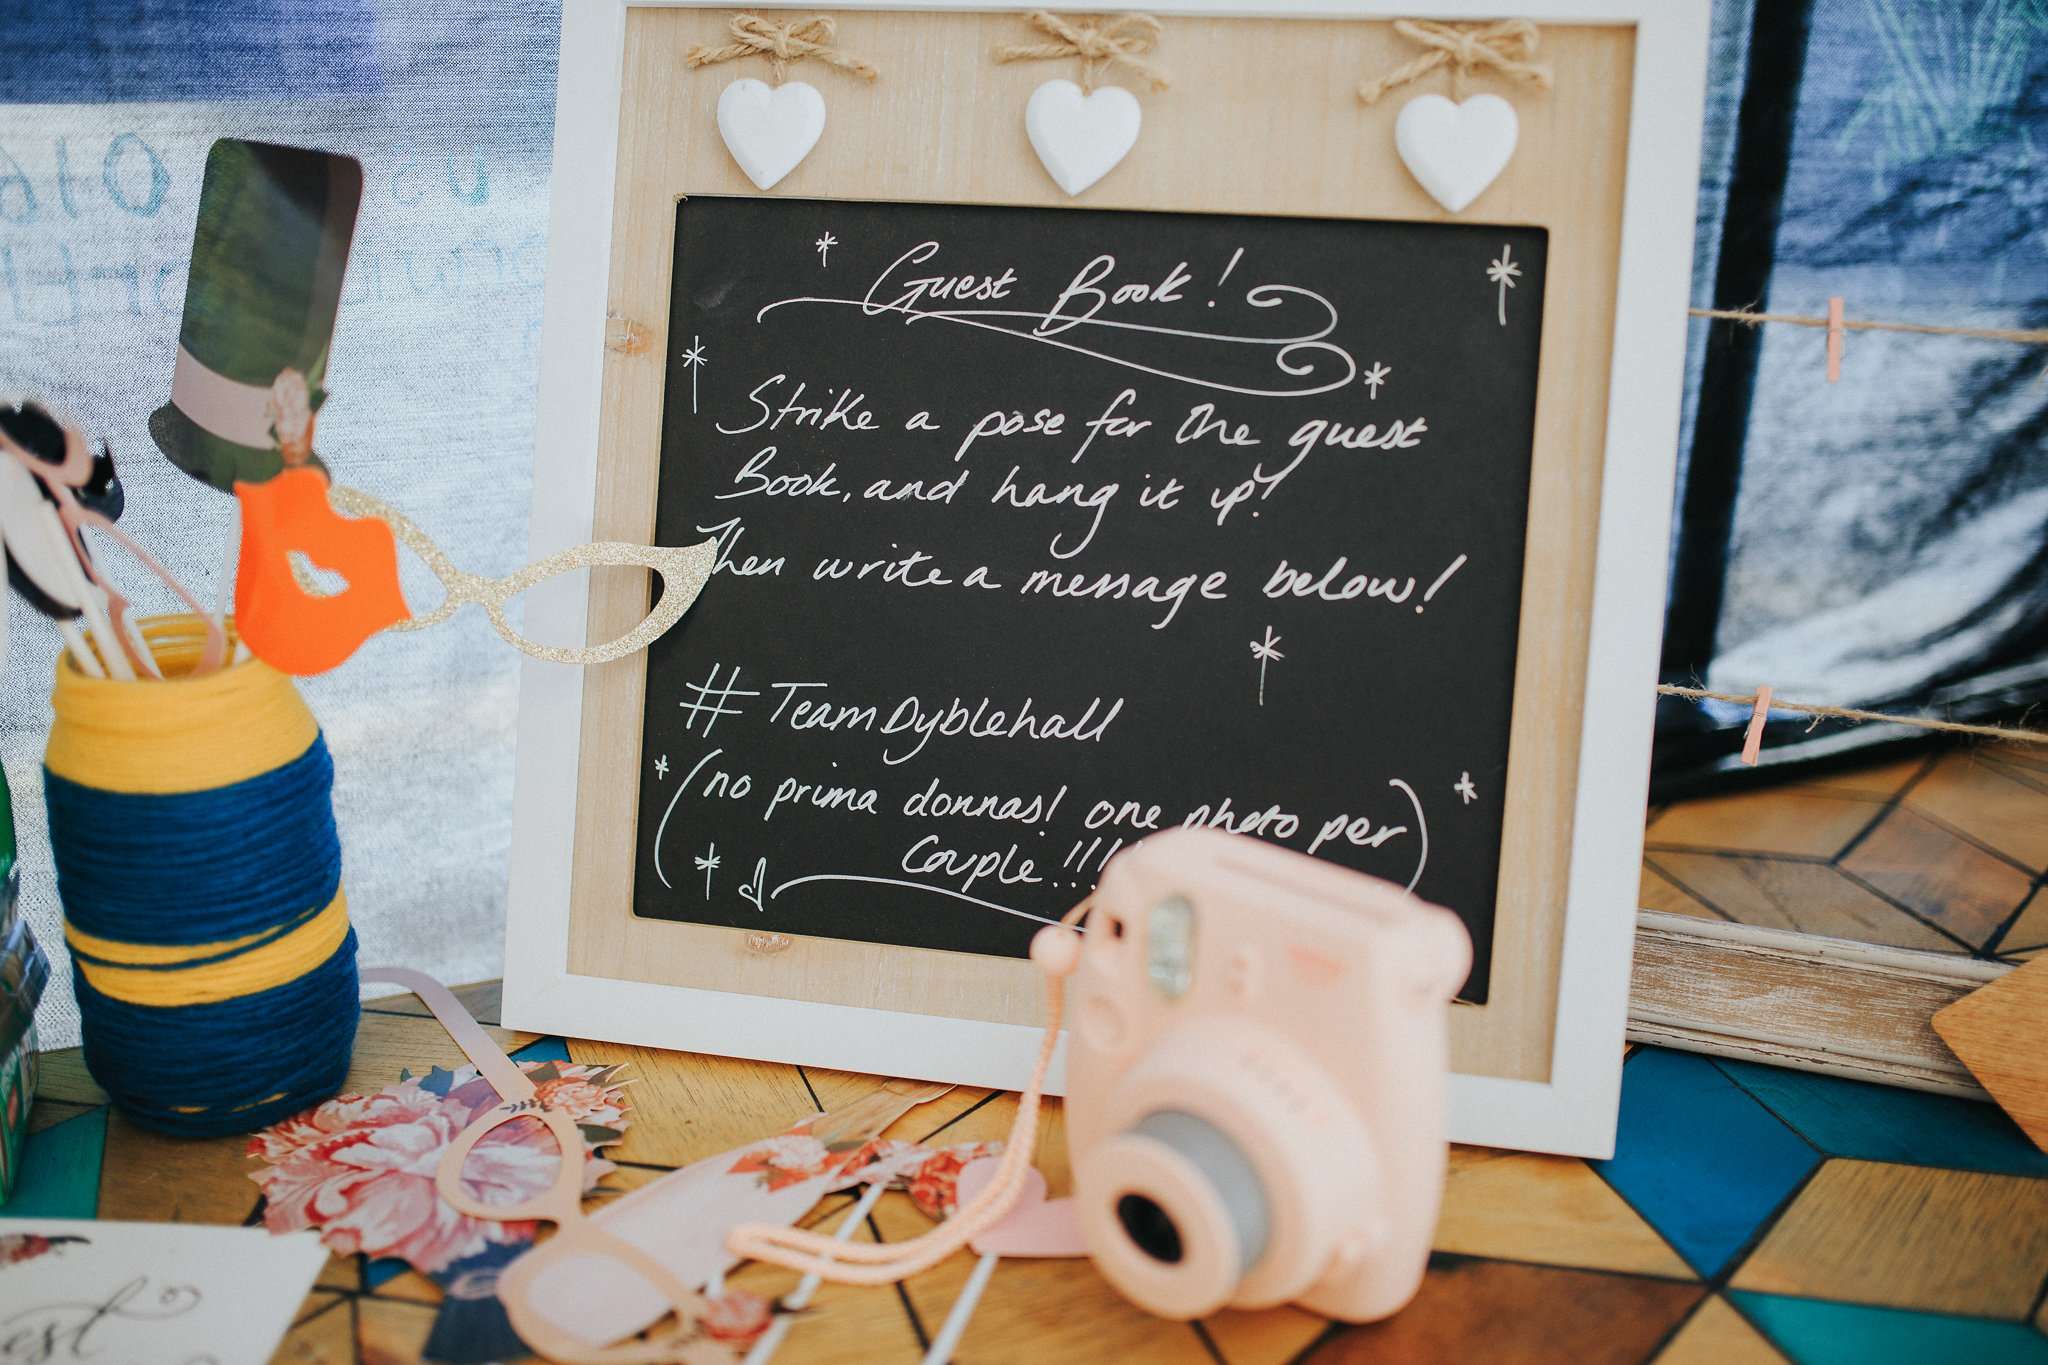 Guest Book!
Strike a pose for the guest
Book, and hang it up!
Then write a message below!
# TeamDyblehall
(no prima donnas! one photo per
Couple!!!